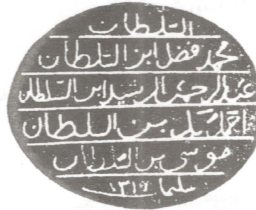 السلطان
محمد فضل ابن السلطان
عبدالرحمن الرشيد ابن السلطان
احمد بكر بن السلطان
موسى بن السلطان
سليمان ١٢١٧